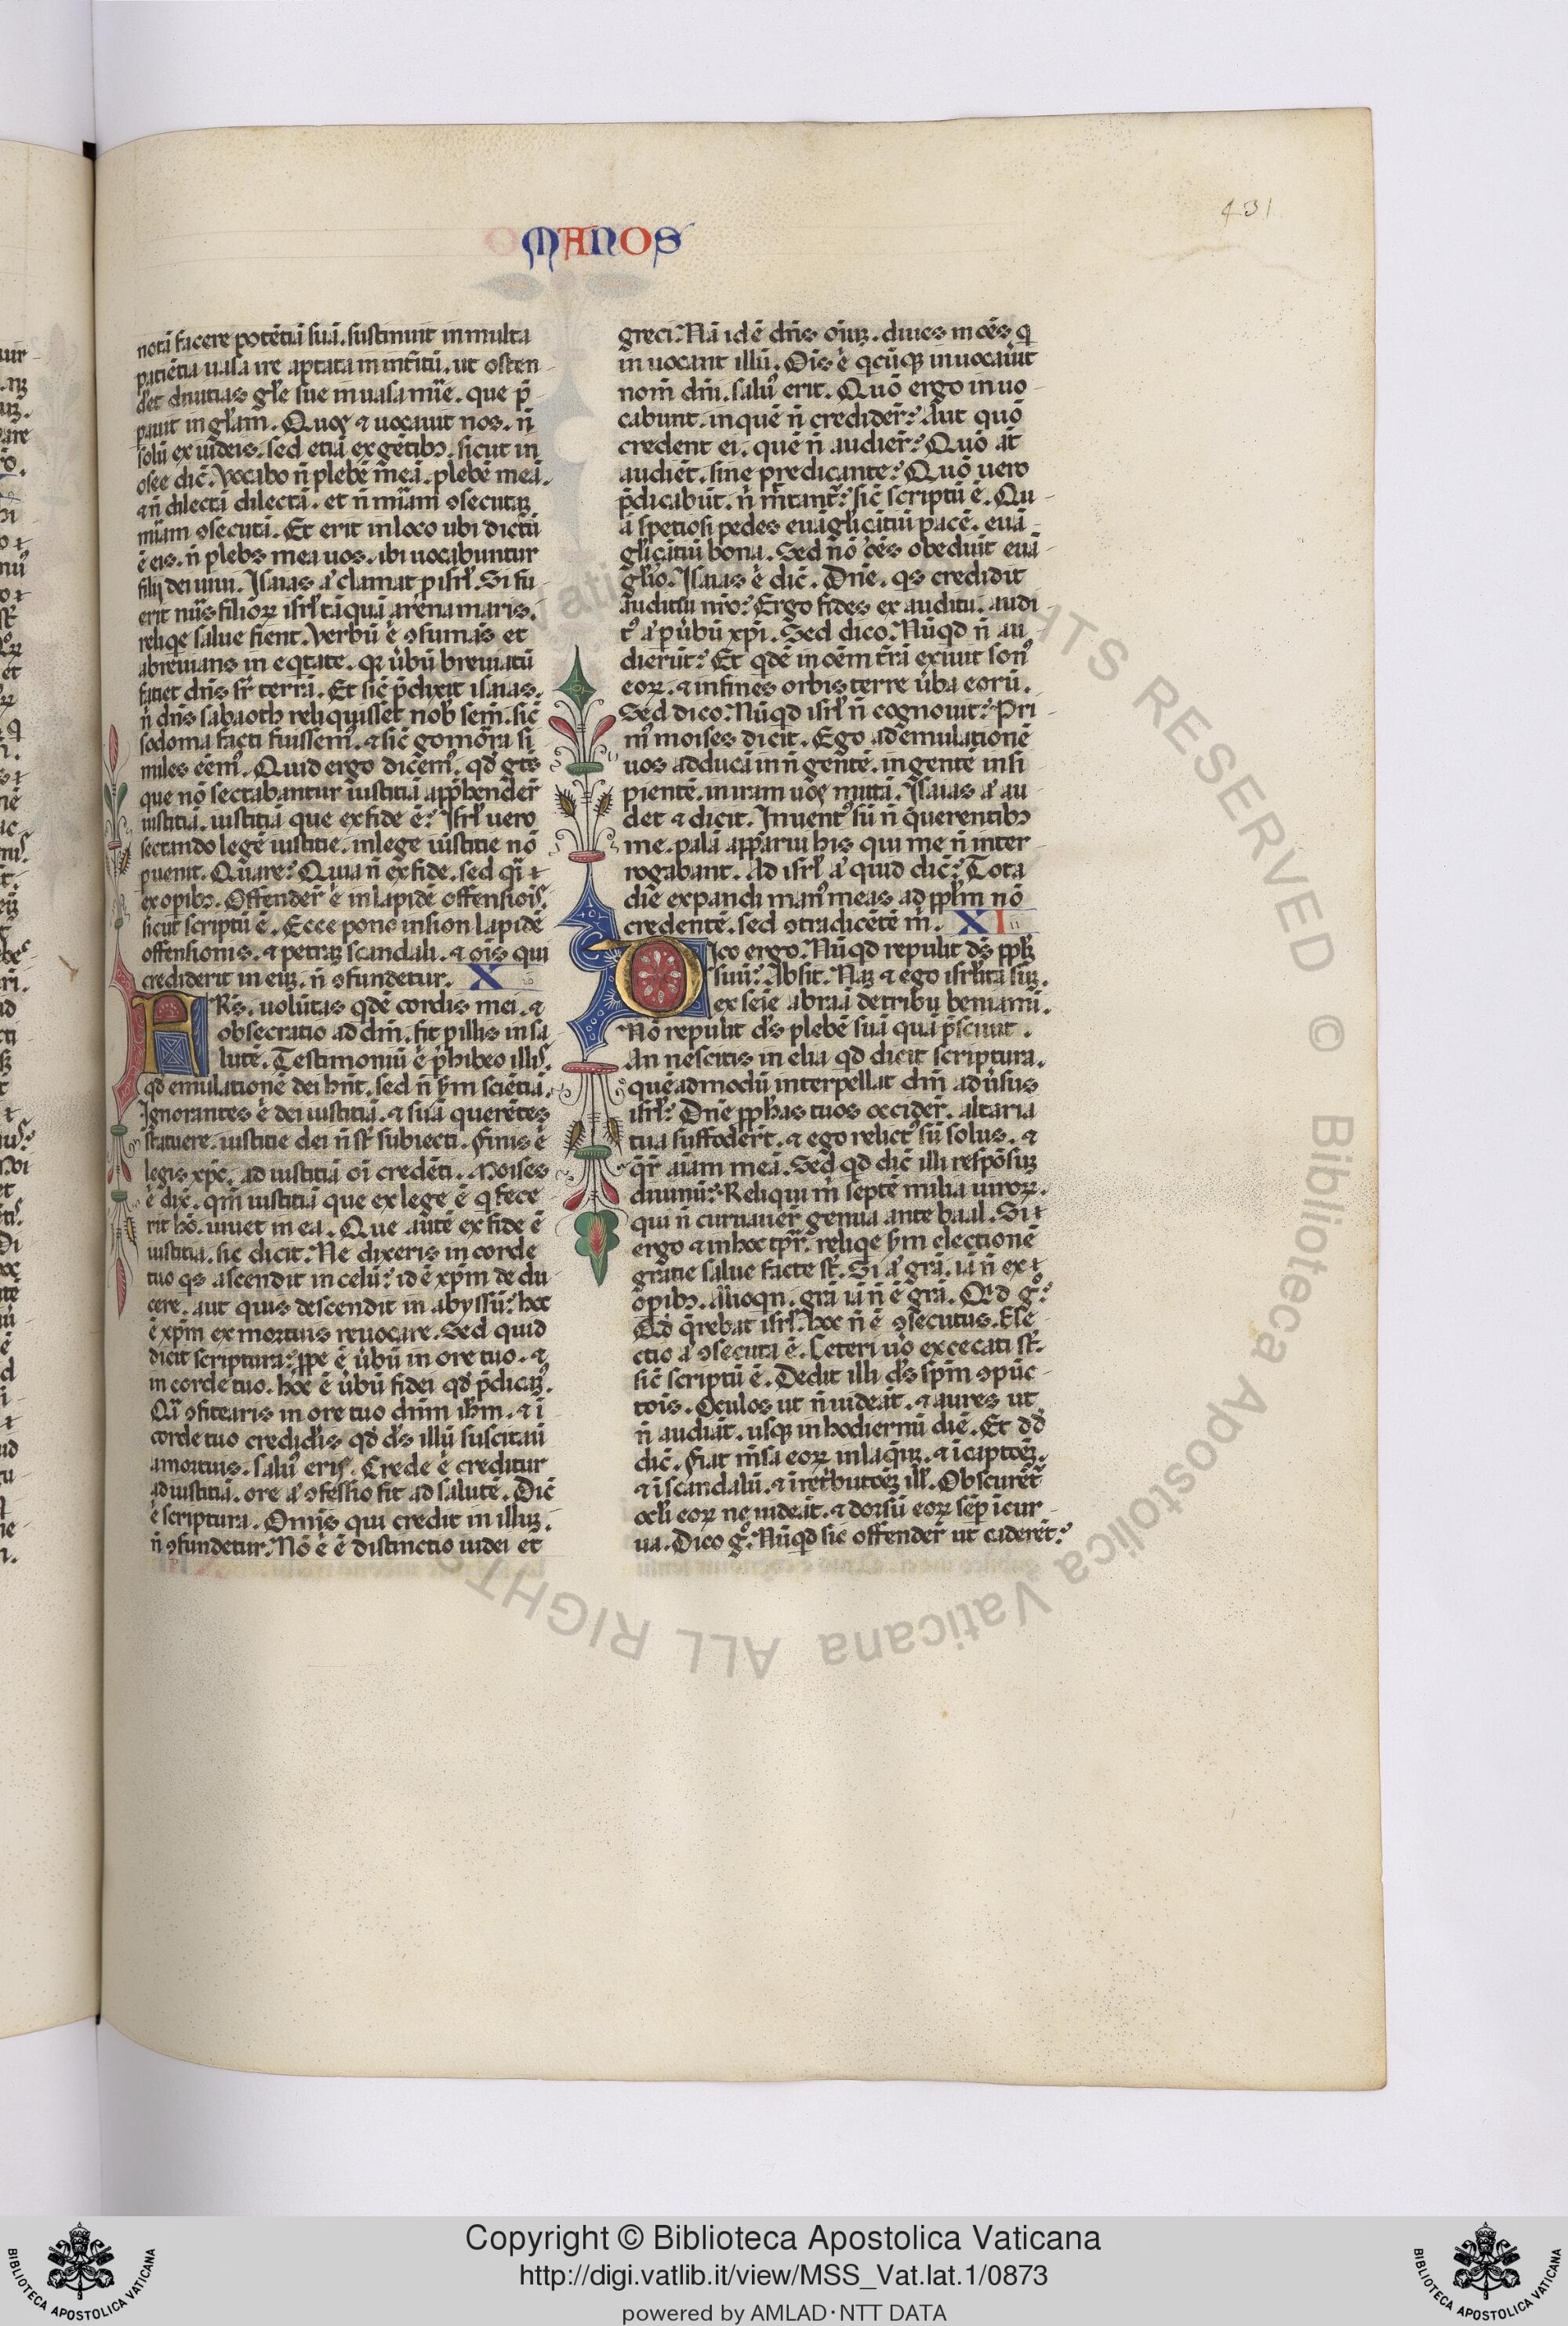 431
OMANOS
notā facere potētiā suā. sustinuit in multa
patiētia uasa ire aptata in intitū. ut osten-
det diuitias gl̄e sue in uasa mīe. que p̄
pauit in gl̄am. Quos ⁊ uocauit nos. n̄
solū ex iudeis. sed etiā ex gētibꝫ. sicut in
osee dic̄. Vocabo n̄ plebē meā. plebē meā.
⁊ n̄ dilectā dilectā. et n̄ mīam ↄsecutaꝫ
mīam ↄsecutā. Et erit in loco ubi dictū
ē eis. n̄ plebs mea uos. ibi uocabuntur
filij dei uiui. Isaias aͥ clamat p isrl̄. Si fu-
erit nūs filioꝝ isrl̄ tāquā arena maris.
reliqe salue fient. Verbū ē ↄsumās et
abreuians in eqtate. qꝛ ūbū breuiatū
faciet dn̄s sr̄ terrā. Et sic̄ p̄dixit isaias.
n̄ dn̄s sabaoth reliquisset nob̄ sem̄. sic̄
sodoma facti fuissemꝰ. ⁊ sic̄ gomōra si
miles eēmꝰ. Quid ergo dicemꝰ. qd̄ gēs
que nō sectabantur iustitiā app̄hender̄
iustitiā. iustitia que ex fide ē: Isrl̄ uero
sectando legē iustitie. in lege iustitie nō
puenit. Quare: Quia n̄ ex fide. sed qi ⁊
ex opibꝫ. Offender̄ ē in lapidē offensiois̄.
sicut scriptū ē. Ecce pono in sion lapidē
offensionis. ⁊ petraꝫ scandali. ⁊ oīs qui
crediderit in eūꝫ. n̄ ↄfundetur. X
FRs̄. uolūtas qdē cordis mei. ⁊
obsecratio ad dm̄. fit p illis in sa
lutē. Testimoniū ē p̄hibeo illis̄.
qd̄ emulationē dei hn̄t. sed n̄ s̄m sciētiā.
Ignorantes ē dei iustitiā. ⁊ suā querētes
statuere. iustitie dei n̄ st̄ subiecti. Finis ē
legis xp̄c. ad iustitiā oī credēti. Moises
ē dix̄. qm̄ iustitiā que ex lege ē q fece
rit hō. uiuet in ea. Que autē ex fide ē
iustitia. sic dicit: Ne dixeris in corde
tuo qs ascendit in celū: id ē xp̄m de du
cere. aut quis descendit in abyssū: hoc
ē xp̄m ex mortuis reuocare. Sed quid
dicit scriptura: ꝓpe ē ūbū in ore tuo. ⁊
in corde tuo. hoc ē ūbū fidei qd̄ p̄dicaꝫ.
Qi ↄfitearis in ore tuo dn̄m ih̄m. ⁊ ī
corde tuo credidis̄ qd̄ ds̄ illū suscitaū
a mortuis. saluꝰ eris̄. Crede ē creditur
ad iustitiā. ore aͥ ↄfessio fit ad salutē. Dic̄
ē scriptura. Omīs qui credit in illūꝫ.
n̄ ↄfundetur: Nō ē ē distinctio iudei et
greci: Nā id ē dn̄s oīuꝫ. diues in oēs q
inuocant illū. Oīs ē qcūqꝫ inuocaūit
nom̄ dn̄i. saluꝰ erit. Quō ergo inuo-
cabunt. in quē n̄ credider̄: Aut quō
credent ei. quē n̄ audier̄: Quō at̄
audiēt. sine predicante: Quō uero
p̄dicabūt. n̄ mītant̄: sic̄ scriptū ē. Qu-
ā spetiosi pedes euāgl̄icātiū pacē. euā-
gl̄icātiū bona. Sed nō oēs obediūt euā-
gl̄io. Isaias ē dic̄. Dn̄e. qs credidit
auditui nr̄o: Ergo fides ex auditu. audi
tꝰ aͥ p ūbū xp̄i. Sed dico: Nūqd n̄ au
dierūt: Et qdē in oēm tr̄ā exiuit sonꝰ
eoꝝ. ⁊ in fines orbis terre ūba eorū.
Sed dico: Nūqd isrl̄ n̄ cognouit: Pri-
mꝰ moises dicit. Ego ad emulationē
uos adducā in n̄ gentē. in gentē insi
pientē. in iram uos̄ mittā. Isaias aͥ au
det ⁊ dicit. Inuentꝰ sū n̄ querentibꝫ
me. palā apparui his qui me n̄ inter
rogabant. Ad isrl̄ aͥ quid dic̄: Tota
die expandi manꝰ meas ad ppl̄m nō
credentē. sed ↄtradicētē m̄. XI
DIco ergo. Nūqd repulit ds̄ ppl̄ꝫ
suū: Absit. Naꝫ ⁊ ego isrl̄ita sūꝫ.
ex seīe abraā de tribu beniamī.
Nō repulit ds̄ plebē suā quā p̄sciuit.
An nescitis in elia qd dicit scriptura.
quēadmodū interpellat dm̄ ad ūsus
isrl̄: Dn̄e ꝓphas tuos occider̄. altaria
tua suffoder̄t. ⁊ ego relictꝰ sū solus. ⁊
q̄r̄ aīam meā. Sed qd dic̄ illi respōsuꝫ
diuinū: Reliqui m̄ septē milia uiroꝝ.
qui n̄ curuauer̄ genua ante baal. Si ⁊
ergo ⁊ in hoc tp̄r̄. reliqe s̄m electionē
gratie salue facte st̄. Si aͥ grā. iā n̄ ex ⁊
opibꝫ. Alioqn. grā iā n̄ ē grā. Qid gͦ:
Qd q̄rebat isrl̄. hoc n̄ ē ↄsecutus. Ele
ctio aͥ ↄsecuta ē. Ceteri uō excecati st̄.
sic̄ scriptū ē. Dedit illi ds̄ sp̄m ↄpūc-
tois. Oculos ut n̄ uideāt. ⁊ aures ut
n̄ audiāt. usqꝫ in hodiernū diē. Et dd̄
dic̄. Fiat m̄sa eoꝝ in laq̄uꝫ. ⁊ ī captōeꝫ.
⁊ ī scandalū. ⁊ ī ret̄butōeꝫ ill̄. Obscurēt̄
ocl̄i eoꝝ ne uideāt. ⁊ dorsū eoꝝ sēp īcur-
ua. Dico gͦ. Nūqd sic offender̄ ut caderēt:
Copyright © Biblioteca Apostolica Vaticana
http://digi.vatlib.it/view/MSS_Vat.lat.1/0873
powered by AMLAD·NTT DATA
BIBLIOTECA APOSTOLICA VATICANA
BIBLIOTECA APOSTOLICA VATICANA
ALL RIGHTS RESERVED © Biblioteca Apostolica Vaticana